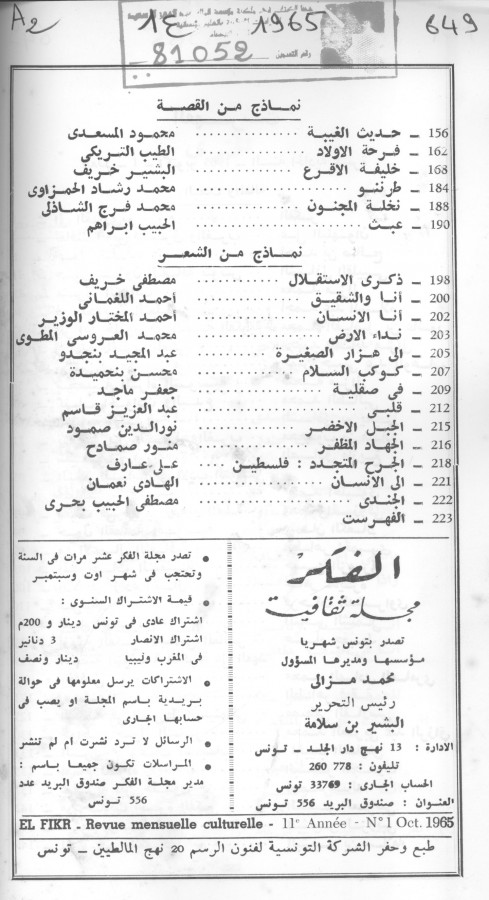 A2
14 1965 649
81052
نماذج من القصة
156 ـ حديث الغيبة ............ محمود المسعدى
162 ـ فرحة الاولاد ............ الطيب التريكى
168 ـ خليفة الاقرع ............ البشير خريف
184 ـ طرننو ............ محمد رشاد الحمزاوى
188 ـ نخلة المجنون ............ محمد فرج الشاذلى
190 ـ عبث ............ الحبيب ابراهم
نماذج من الشعر
198 ـ ذكرى الاستقلال ............ مصطفى خريف
200 ـ أنا والشقيق ............ أحمد اللغمانى
202 ـ أنا الانسان ............ أحمد المختار الوزير
203 ـ نداء الارض ............ محمد العروسى المطوى
205 ـ الى هزار الصغيرة ............ عبد المجيد بنجدو
207 ـ كوكب السلام ............ محسن بنحميدة
209 ـ فى صقلية ............ جعفر ماجد
212 ـ قلبى ............ عبد العزيز قاسم
215 ـ الجبل الاخضر ............ نورالدين صمود
216 ـ الجهاد المظفر ............ منور صمادح
218 ـ الجرح المتجدد : فلسطين .... على عارف
221 ـ الى الانسان ............ الهادى نعمان
222 ـ الجندى ............ مصطفى الحبيب بحرى
223 ـ الفهرست
الفكر
مجلة ثقافية
تصدر بتونس شهريا
مؤسسها ومديرها المسؤول
محمد مزالى
رئيس التحرير
البشير بن سلامة
الادارة : 13 نهج دار الجلد ـ تونس
تليفون : 260 778
الحساب الجارى : 33769 تونس
العنوان : صندوق البريد 556 تونس
• تصدر مجلة الفكر عشر مرات فى السنة
وتحتجب فى شهر اوت وسبتمبر
• قيمة الاشتراك السنوى :
اشتراك عادى فى تونس دينار و 200م
اشتراك الانصار 3 دنانير
فى المغرب وليبيا دينار ونصف
• الاشتراكات يرسل معلومها فى حوالة
بريدية باسم المجلة او يصب فى
حسابها الجارى
• الرسائل لا ترد نشرت ام لم تنشر
• المراسلات تكون جميعا باسم :
مدير مجلة الفكر صندوق البريد عدد
556 تونس
EL FIKR - Revue mensuelle culturelle - 11e Année - N° 1 Oct. 1965
طبع وحفر الشركة التونسية لفنون الرسم 20 نهج المالطيين ـ تونس